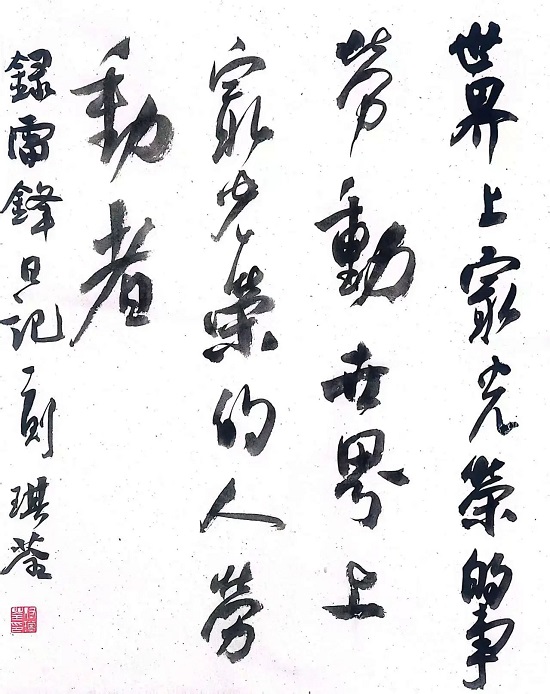 世界上最光榮的事
勞動世界上
最光榮的人勞
動者
録雷鋒日記一則 琪瑩